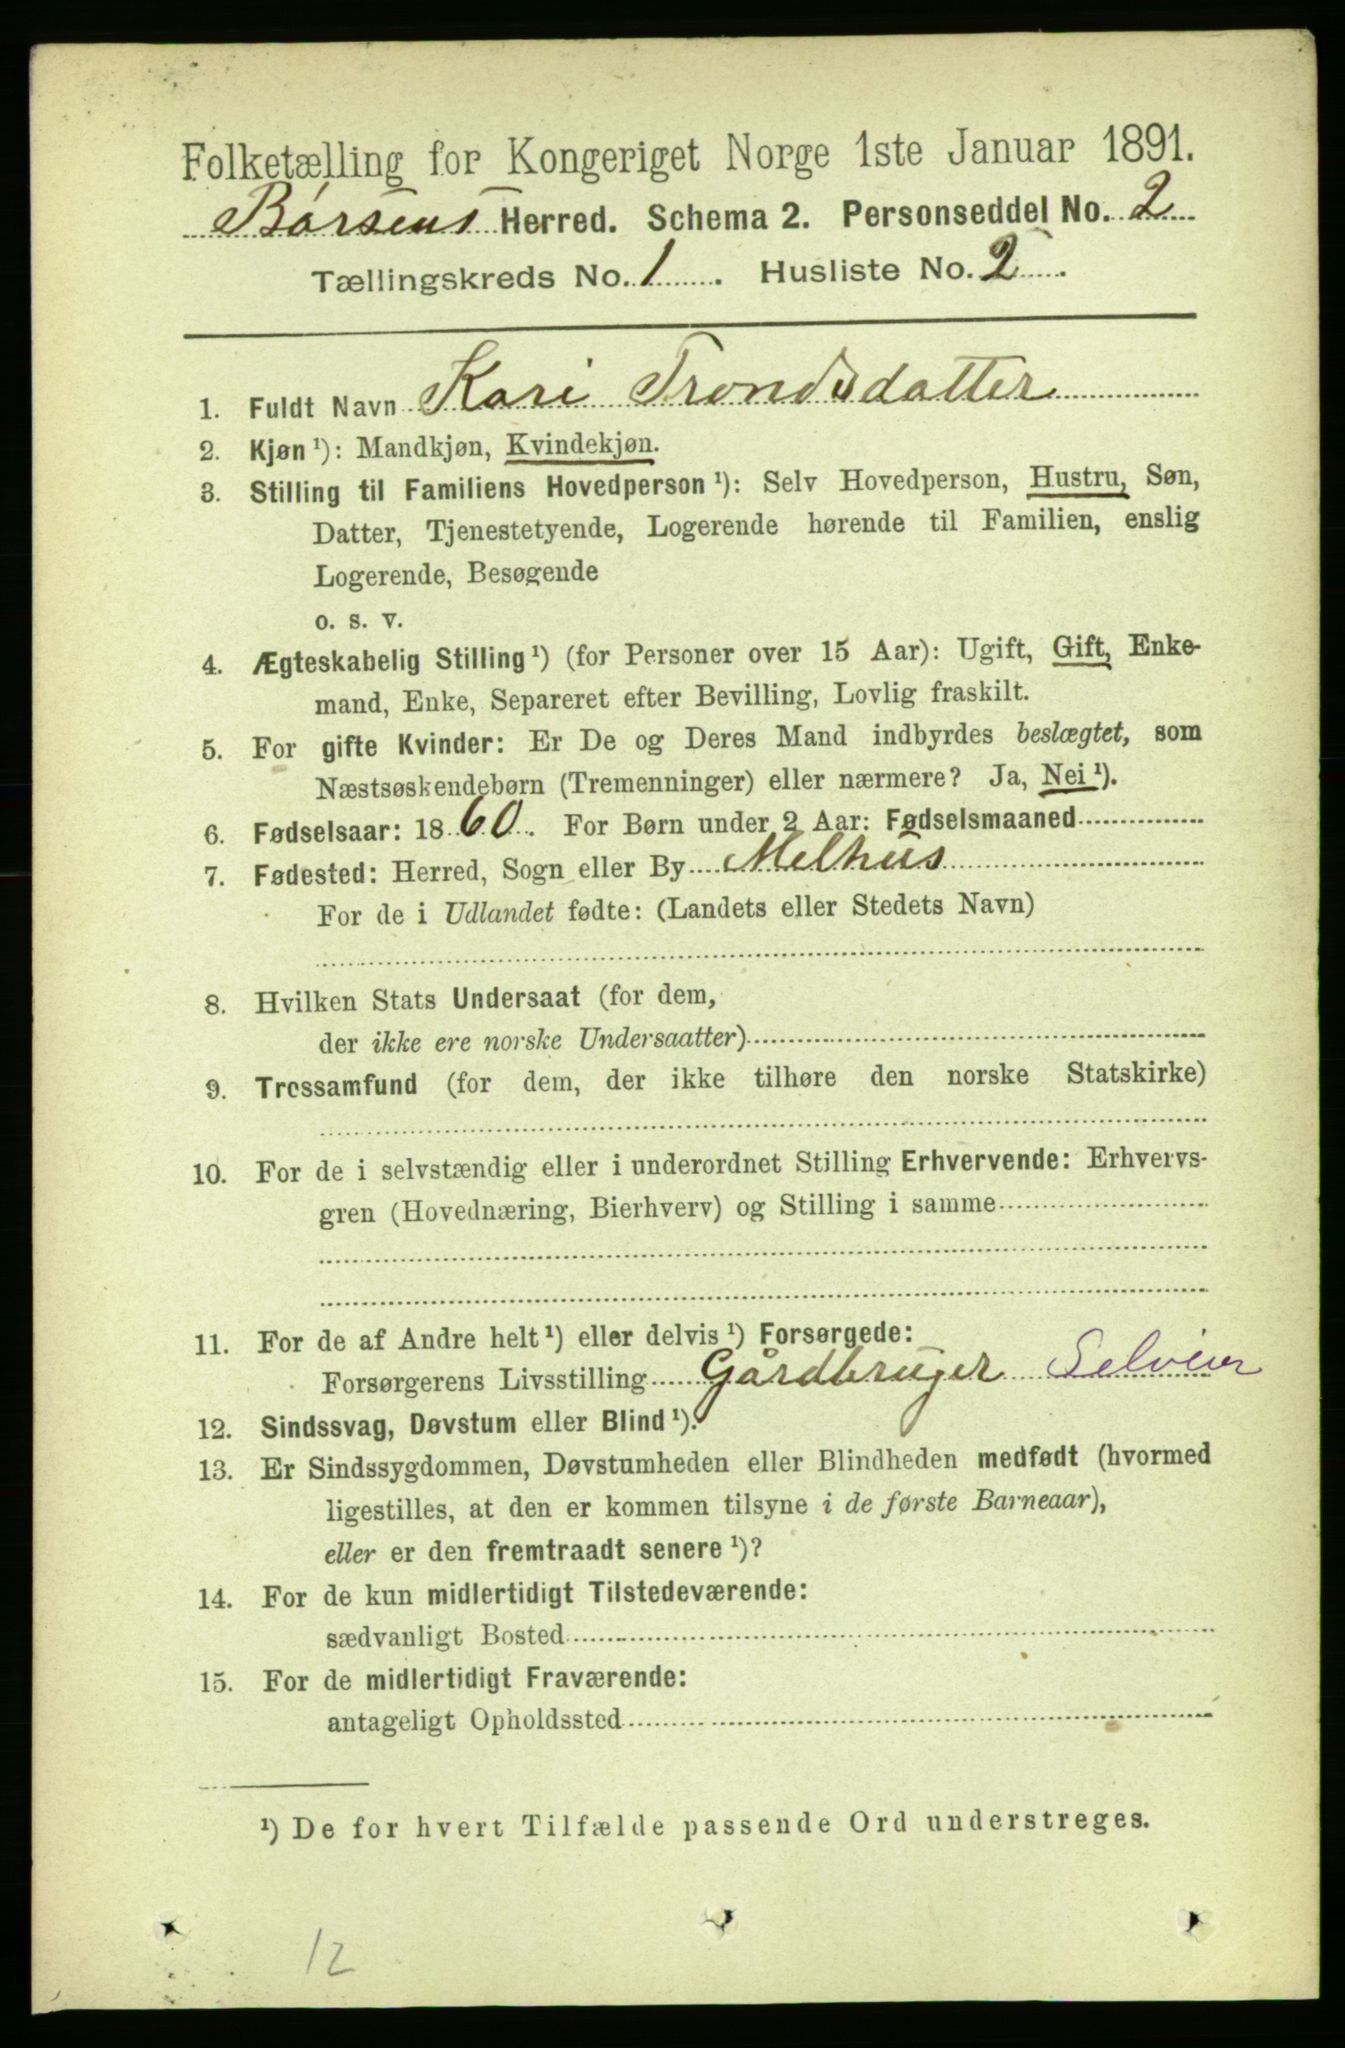 Folketælling for Kongeriget Norge 1ste Januar 1891.
Børsens Herred. Schema 2. Personseddel No. 2
Tællingskreds No. 1. Husliste No. 2.
1. Fuldt Navn Kari Trondsdatter
2. Kjøn ¹): Mandkjøn, Kvindekjøn.
3. Stilling til Familiens Hovedperson ¹): Selv Hovedperson, Hustru, Søn,
Datter, Tjenestetyende, Logerende hørende til Familien, enslig
Logerende, Besøgende
o. s. v.
4. Ægteskabelig Stilling ¹) (for Personer over 15 Aar): Ugift, Gift, Enke-
mand, Enke, Separeret efter Bevilling, Lovlig fraskilt.
5. For gifte Kvinder: Er De og Deres Mand indbyrdes beslægtet, som
Næstsøskendebørn (Tremenninger) eller nærmere? Ja, Nei ¹).
6. Fødselsaar: 1860. For Børn under 2 Aar: Fødselsmaaned
7. Fødested: Herred, Sogn eller By Melhus
For de i Udlandet fødte: (Landets eller Stedets Navn)
8. Hvilken Stats Undersaat (for dem,
der ikke ere norske Undersaatter)
9. Trossamfund (for dem, der ikke tilhøre den norske Statskirke)
10. For de i selvstændig eller i underordnet Stilling Erhvervende: Erhvervs-
gren (Hovednæring, Bierhverv) og Stilling i samme
11. For de af Andre helt ¹) eller delvis ¹) Forsørgede:
Forsørgerens Livsstilling Gårdbruger Selveier
12. Sindssvag, Døvstum eller Blind ¹).
13. Er Sindssygdommen, Døvstumheden eller Blindheden medfødt (hvormed
ligestilles, at den er kommen tilsyne i de første Barneaar),
eller er den fremtraadt senere ¹)?
14. For de kun midlertidigt Tilstedeværende:
sædvanligt Bosted
15. For de midlertidigt Fraværende:
antageligt Opholdssted
¹) De for hvert Tilfælde passende Ord understreges.
12